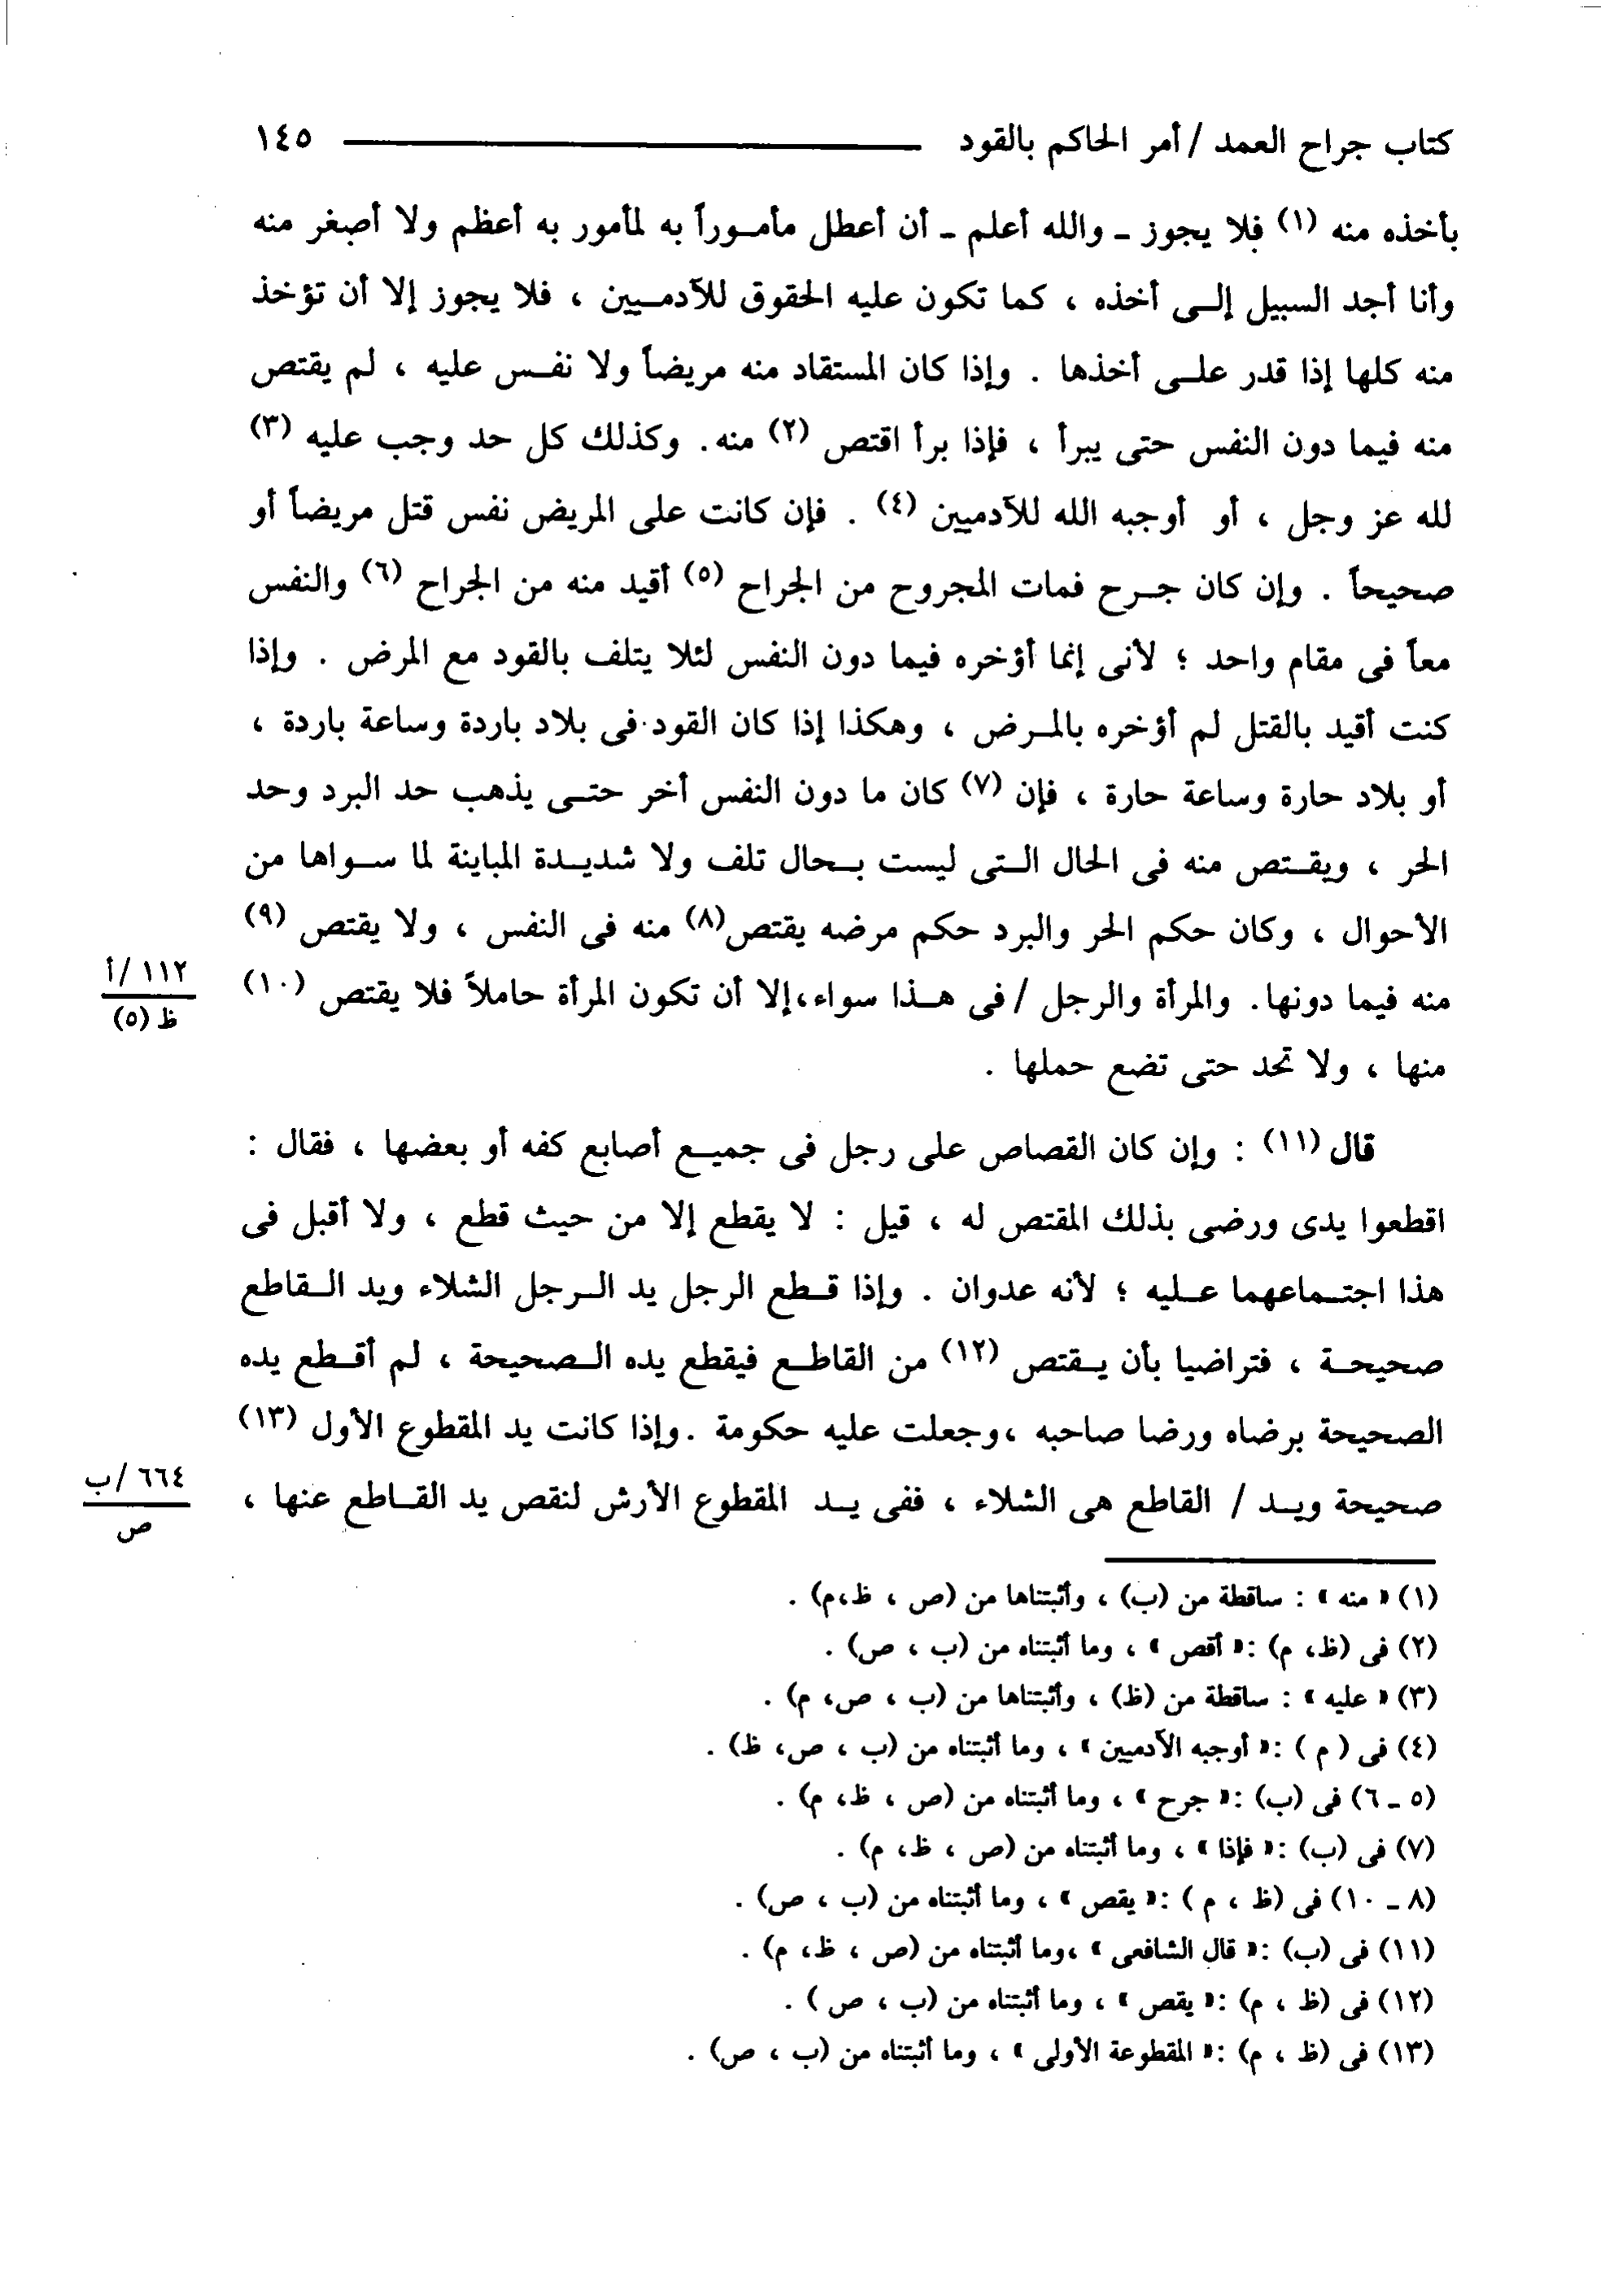 كتاب جراح العمد / أمر الحاكم بالقود ١٤٥
بأخذه منه (١) فلا يجوز ـ والله أعلم ـ أن أعطل مأموراً به لمأمور به أعظم ولا أصغر منه
وأنا أجد السبيل إلى أخذه ، كما تكون عليه الحقوق للآدميين ، فلا يجوز إلا أن تؤخذ
منه كلها إذا قدر على أخذها . وإذا كان المستقاد منه مريضاً ولا نفس عليه ، لم يقتص
منه فيما دون النفس حتى يبرأ ، فإذا برأ اقتص (٢) منه. وكذلك كل حد وجب عليه (٣)
لله عز وجل ، أو أوجبه الله للآدميين (٤) . فإن كانت على المريض نفس قتل مريضاً أو
صحيحاً . وإن كان جرح فمات المجروح من الجراح (٥) أقيد منه من الجراح (٦) والنفس
معاً فى مقام واحد ؛ لأنى إنما أؤخره فيما دون النفس لئلا يتلف بالقود مع المرض . وإذا
كنت أقيد بالقتل لم أؤخره بالمرض ، وهكذا إذا كان القود فى بلاد باردة وساعة باردة ،
أو بلاد حارة وساعة حارة ، فإن (٧) كان ما دون النفس أخر حتى يذهب حد البرد وحد
الحر ، ويقتص منه فى الحال التى ليست بحال تلف ولا شديدة المباينة لما سواها من
الأحوال ، وكان حكم الحر والبرد حكم مرضه يقتص(٨) منه فى النفس ، ولا يقتص (٩)
منه فيما دونها. والمرأة والرجل / فى هذا سواء،إلا أن تكون المرأة حاملاً فلا يقتص (١٠)
١١٢/ أ
ظ (٥)
منها ، ولا تحد حتى تضع حملها .
قال (١١) : وإن كان القصاص على رجل فى جميع أصابع كفه أو بعضها ، فقال :
اقطعوا يدى ورضى بذلك المقتص له ، قيل : لا يقطع إلا من حيث قطع ، ولا أقبل فى
هذا اجتماعهما عليه ؛ لأنه عدوان . وإذا قطع الرجل يد الرجل الشلاء ويد القاطع
صحيحة ، فتراضيا بأن يقتص (١٢) من القاطع فيقطع يده الصحيحة ، لم أقطع يده
الصحيحة برضاه ورضا صاحبه ،وجعلت عليه حكومة .وإذا كانت يد المقطوع الأول (١٣)
صحيحة ويد / القاطع هى الشلاء ، ففى يد المقطوع الأرش لنقص يد القاطع عنها ،
٦٦٤/ ب
ص
(١) « منه » : ساقطة من (ب) ، وأثبتناها من (ص ، ظ،م) .
(٢) فى (ظ، م) :« أقص » ، وما أثبتناه من (ب ، ص) .
(٣) « عليه » : ساقطة من (ظ) ، وأثبتناها من (ب ، ص، م) .
(٤) فى ( م ) :« أوجبه الآدميين » ، وما أثبتناه من (ب ، ص، ظ) .
(٥ ـ ٦) فى (ب) :« جرح » ، وما أثبتناه من (ص ، ظ، م) .
(٧) فى (ب) :« فإذا » ، وما أثبتناه من (ص ، ظ، م) .
(٨ ـ ١٠) فى (ظ ، م ) :« يقص » ، وما أثبتناه من (ب ، ص) .
(١١) فى (ب) :« قال الشافعى » ،وما أثبتناه من (ص ، ظ، م) .
(١٢) فى (ظ ، م) :« يقص » ، وما أثبتناه من (ب ، ص ) .
(١٣) فى (ظ ، م) :« المقطوعة الأولى » ، وما أثبتناه من (ب ، ص) .